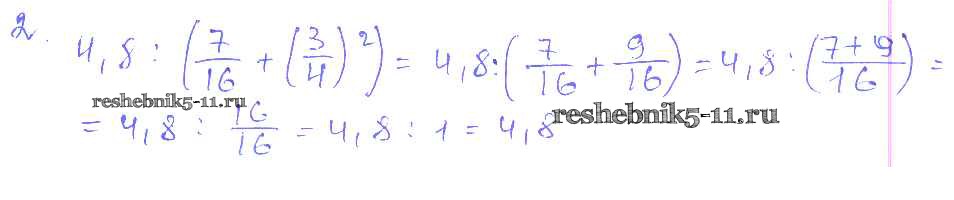 2.
4,8 : (7/16 + (3/4)²) = 4,8 : (7/16 + 9/16) = 4,8 : ((7+9)/16) =
reshebnik5-11.ru
= 4,8 : 16/16 = 4,8 : 1 = 4,8
reshebnik5-11.ru